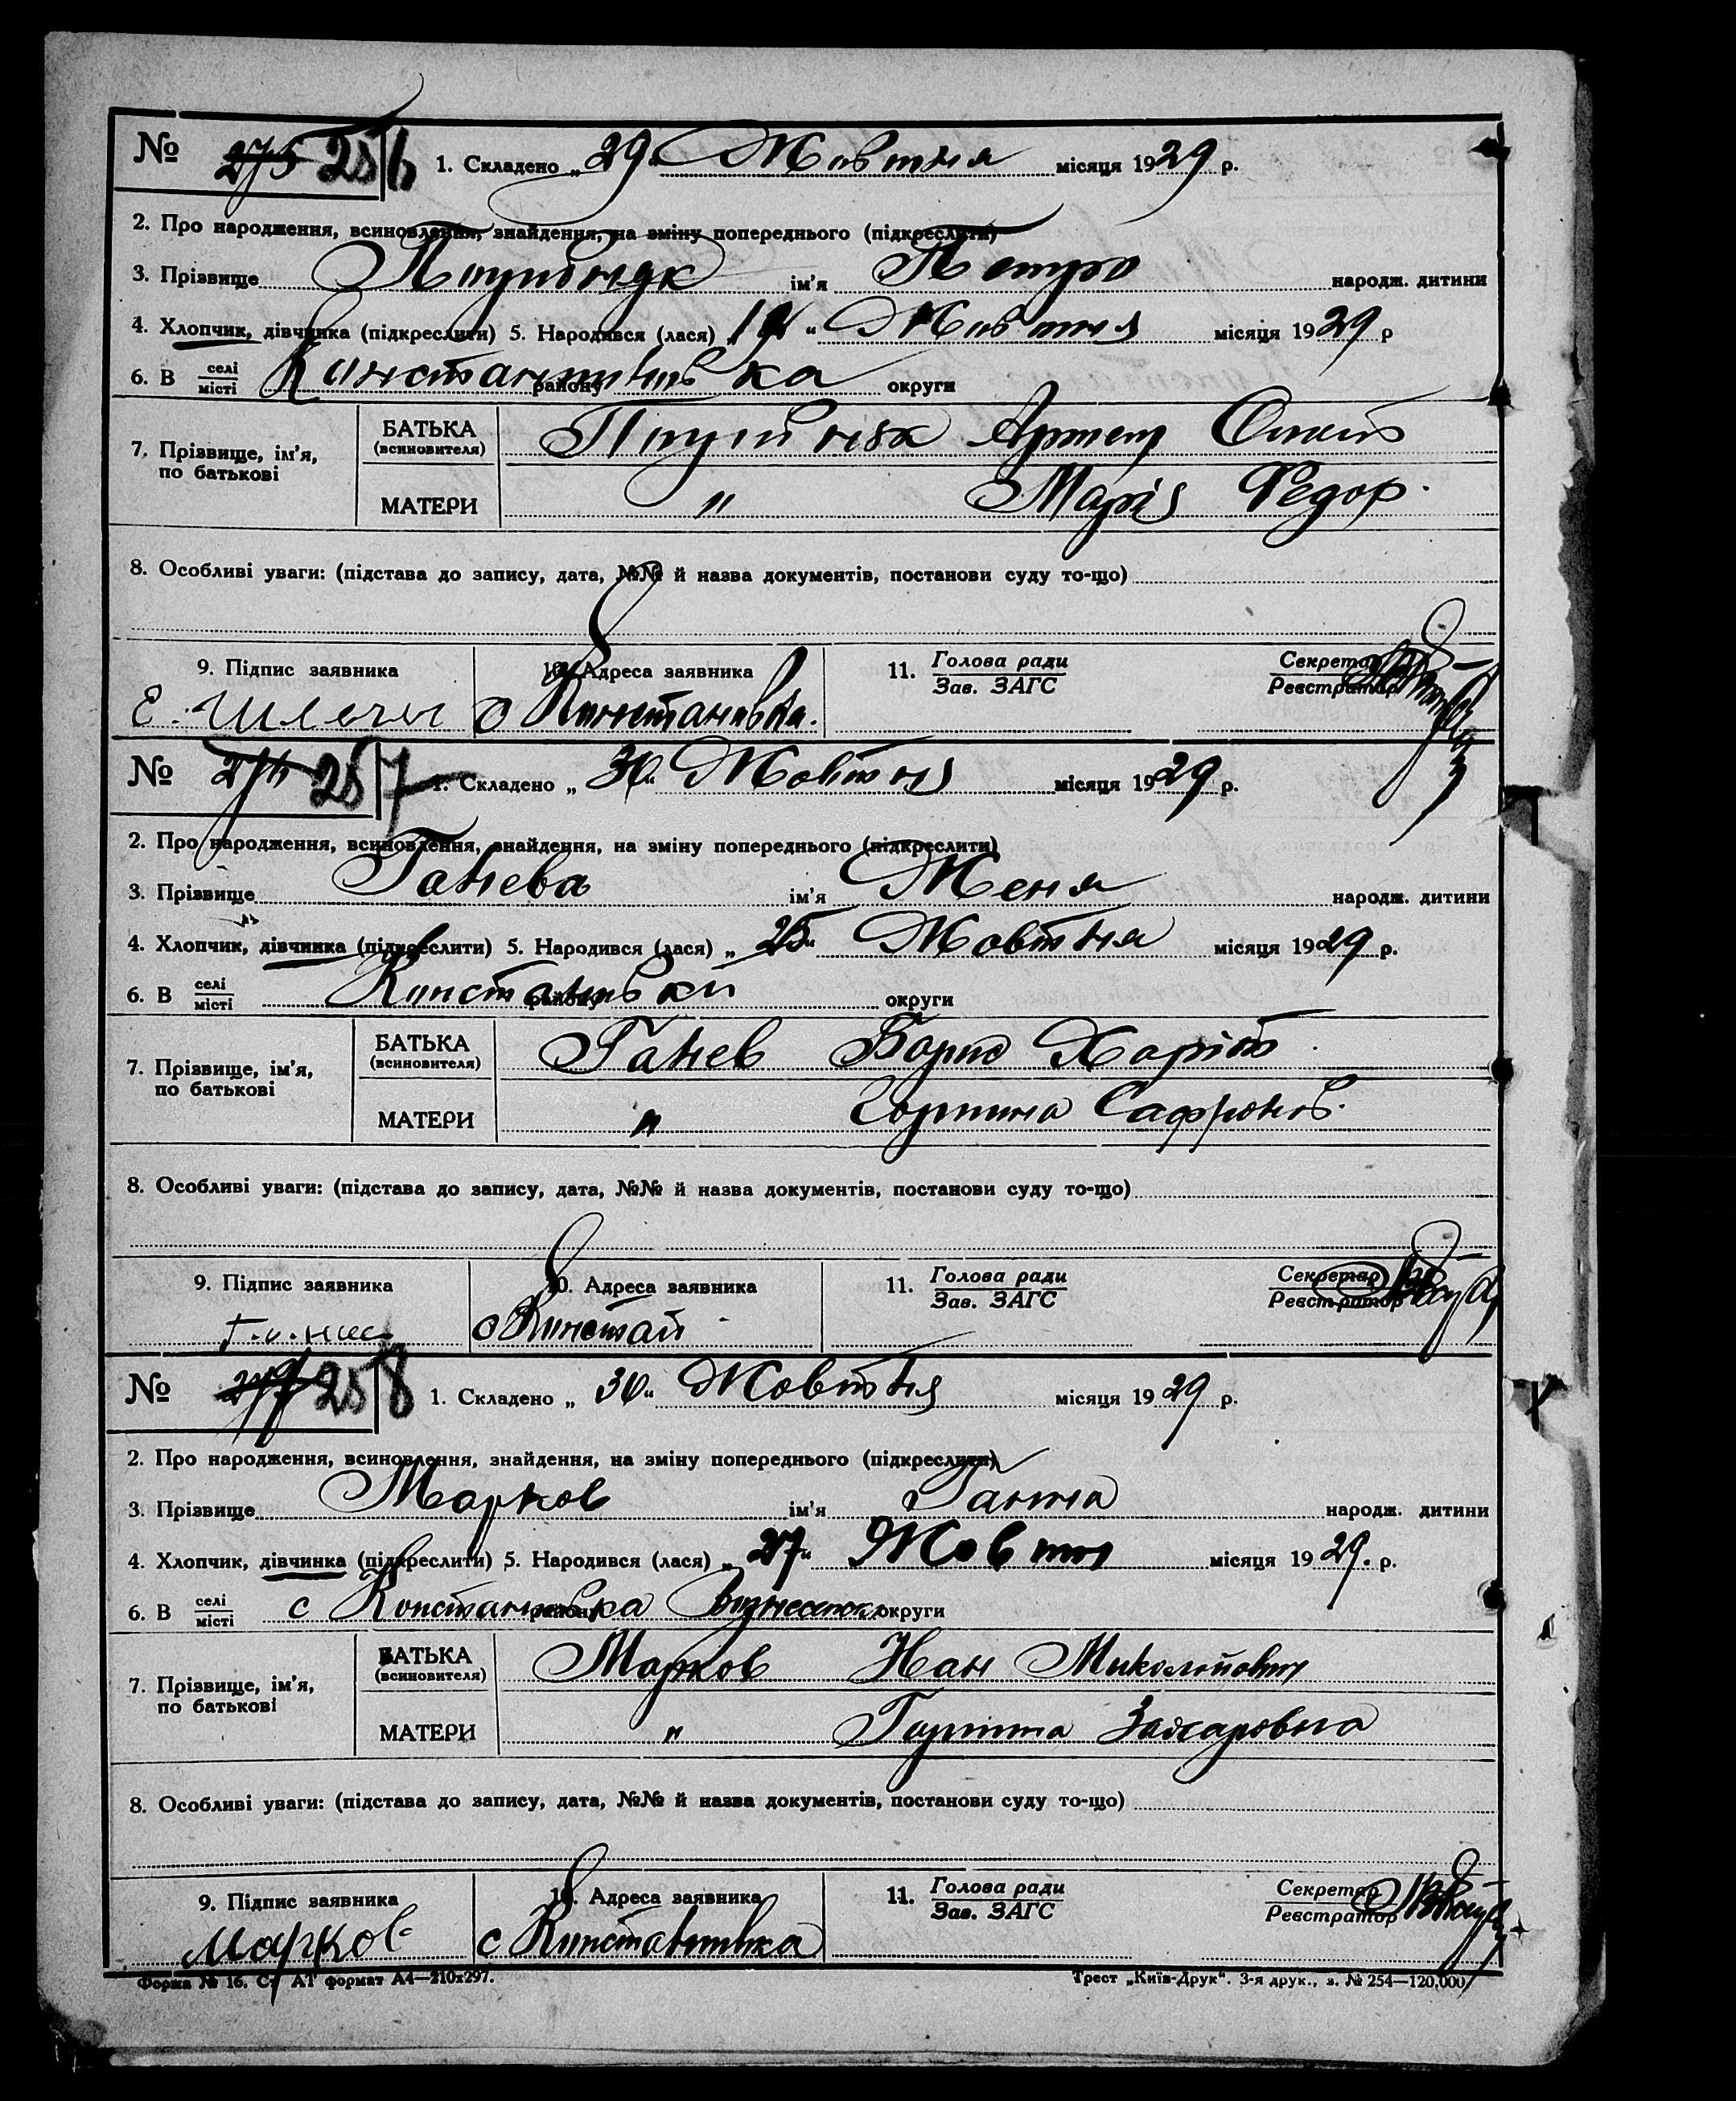 № 275 256 1. Складено „29" Жовтня місяця 1929 р.
2. Про народження, всиновлення, знайдення, на зміну попереднього (підкреслити)
3. Прізвище ім'я Петро народж. дитини
4. Хлопчик, дівчинка (підкреслити) 5. Народився (лася) „ " Жовтня місяця 1929 р
6. В селі місті Константинівка району округи
7. Прізвище, ім'я, по батькові
БАТЬКА (всиновителя) Артем
МАТЕРИ " Марія Федор.
8. Особливі уваги: (підстава до запису, дата, №№ й назва документів, постанови суду то-що)
9. Підпис заявника 10. Адреса заявника 11. Голова ради Зав. ЗАГС Секретар Реєстратор
Е.
№ 276 257 1. Складено „30" Жовтня місяця 1929 р.
2. Про народження, всиновлення, знайдення, на зміну попереднього (підкреслити)
3. Прізвище Ганева ім'я Женя народж. дитини
4. Хлопчик, дівчинка (підкреслити) 5. Народився (лася) „25" Жовтня місяця 1929 р.
6. В селі місті району округи
7. Прізвище, ім'я, по батькові
БАТЬКА (всиновителя) Ганев Борис Харіт.
МАТЕРИ " Горпина Сафронов.
8. Особливі уваги: (підстава до запису, дата, №№ й назва документів, постанови суду то-що)
9. Підпис заявника 10. Адреса заявника 11. Голова ради Зав. ЗАГС Секретар Реєстратор
№ 277 258 1. Складено „30" Жовтня місяця 1929 р.
2. Про народження, всиновлення, знайдення, на зміну попереднього (підкреслити)
3. Прізвище Марков ім'я Ганна народж. дитини
4. Хлопчик, дівчинка (підкреслити) 5. Народився (лася) „27" Жовтня місяця 1929. р.
6. В селі місті с Константинівка району округи
7. Прізвище, ім'я, по батькові
БАТЬКА (всиновителя) Марков Іван Миколайович
МАТЕРИ " Горпина Захаровна
8. Особливі уваги: (підстава до запису, дата, №№ й назва документів, постанови суду то-що)
9. Підпис заявника 10. Адреса заявника 11. Голова ради Зав. ЗАГС Секретар Реєстратор
Марков с Константинівка
Форма № 16. Ст АТ формат А4—210x297. Трест „Київ-Друк". 3-я друк., з. № 254—120.000